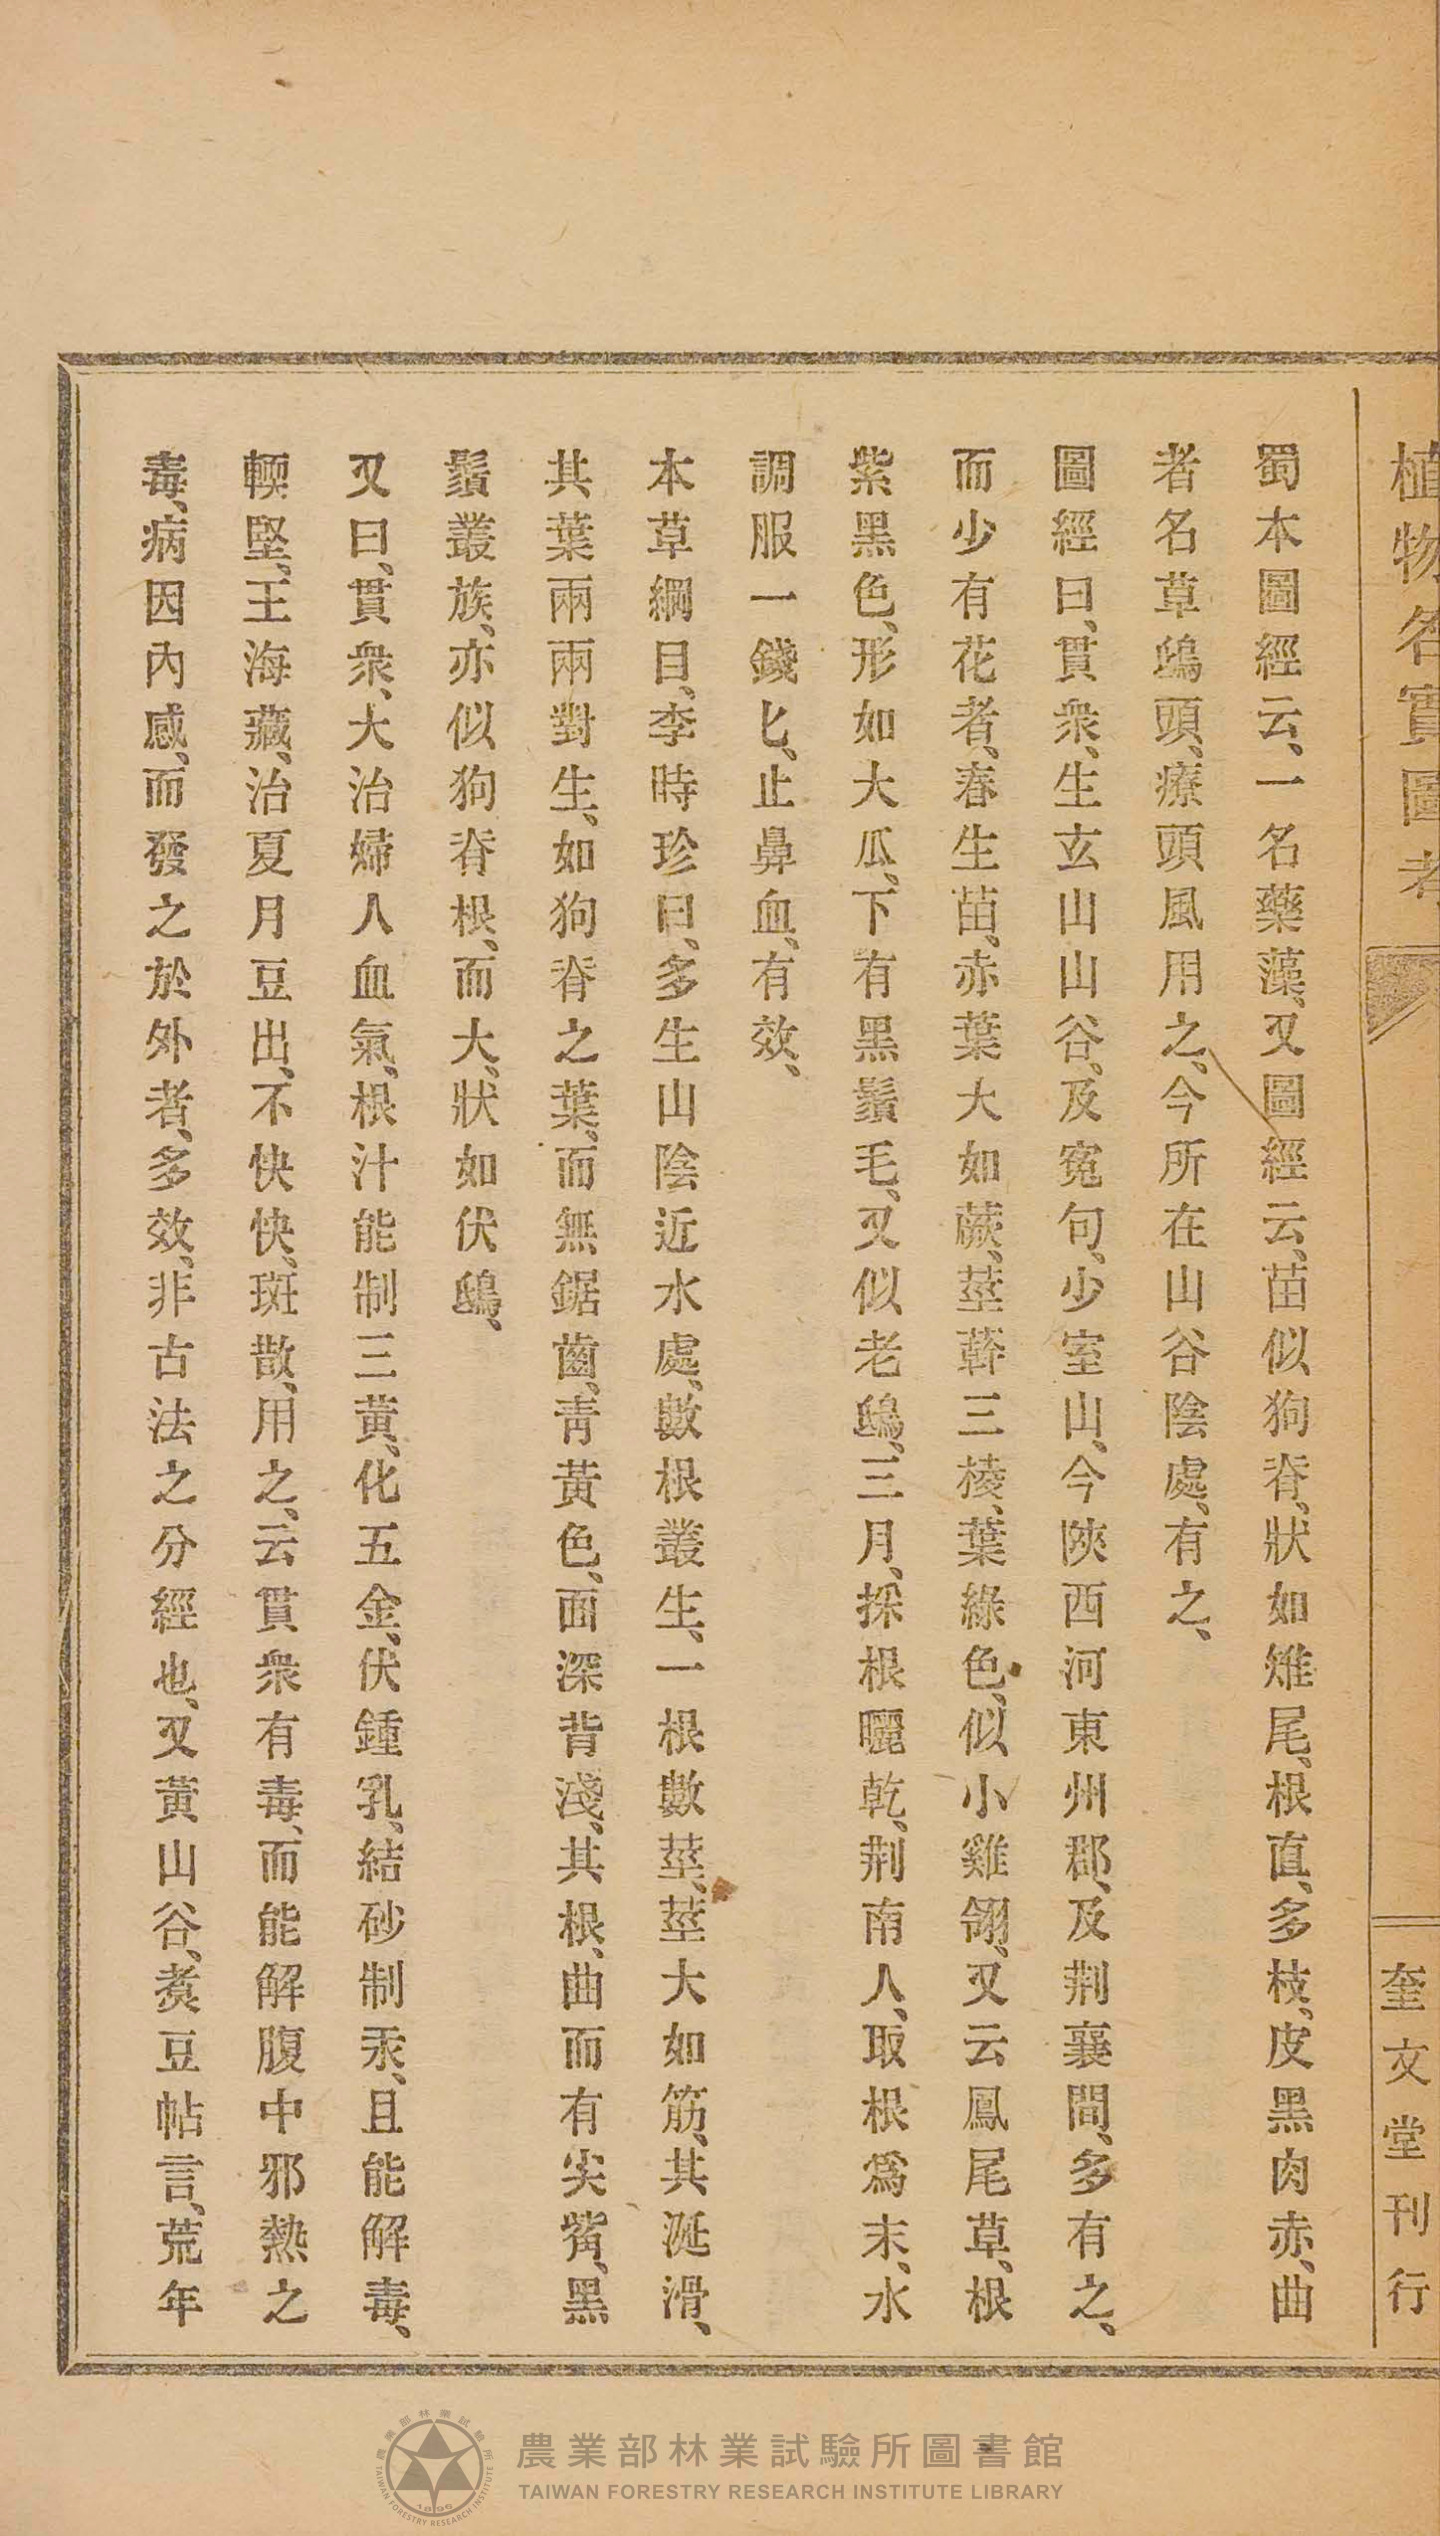 植物名實圖考
奎文堂刊行
蜀本圖經云、一名藥藻、又圖經云、苗似狗脊、狀如雉尾、根直、多枝、皮黑肉赤、曲
者名草鴟頭、療頭風用之、今所在山谷陰處、有之、
圖經曰、貫衆、生玄山山谷、及冤句、少室山、今陝西河東州郡、及荆襄間、多有之、
而少有花者、春生苗、赤葉大如蕨、莖簳三棱、葉綠色、似小雞翎、又云鳳尾草、根
紫黑色、形如大瓜、下有黑鬚毛、又似老鴟、三月、採根曬乾、荆南人、取根爲末、水
調服一錢匕、止鼻血、有效、
本草綱目、李時珍曰、多生山陰近水處、數根叢生、一根數莖、莖大如筋、其涎滑、
其葉兩兩對生、如狗脊之葉、而無鋸齒、青黃色、面深背淺、其根、曲而有尖觜、黑
鬚叢族、亦似狗脊根、而大、狀如伏鴟、
又曰、貫衆、大治婦人血氣、根汁能制三黃、化五金、伏鍾乳、結砂制汞、且能解毒、
輭堅、王海藏、治夏月豆出、不快快、斑散、用之、云貫衆有毒、而能解腹中邪熱之
毒、病因內感、而發之於外者、多效、非古法之分經也、又黃山谷、煑豆帖言、荒年
農業部林業試驗所圖書館
TAIWAN FORESTRY RESEARCH INSTITUTE LIBRARY
農業部林業試驗所
TAIWAN FORESTRY RESEARCH INSTITUTE
1896